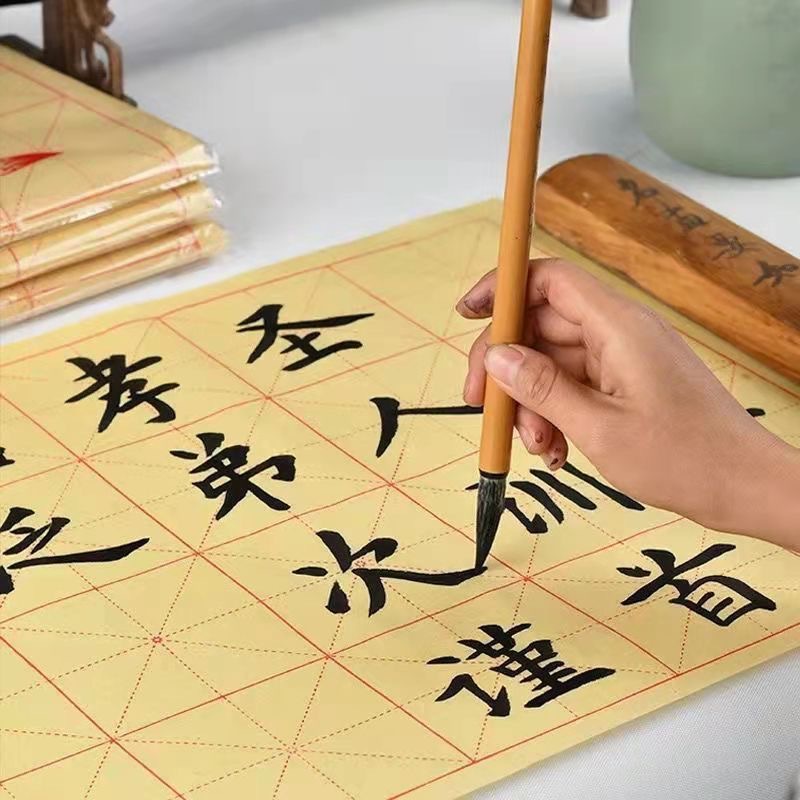 圣人训首
孝弟次谨